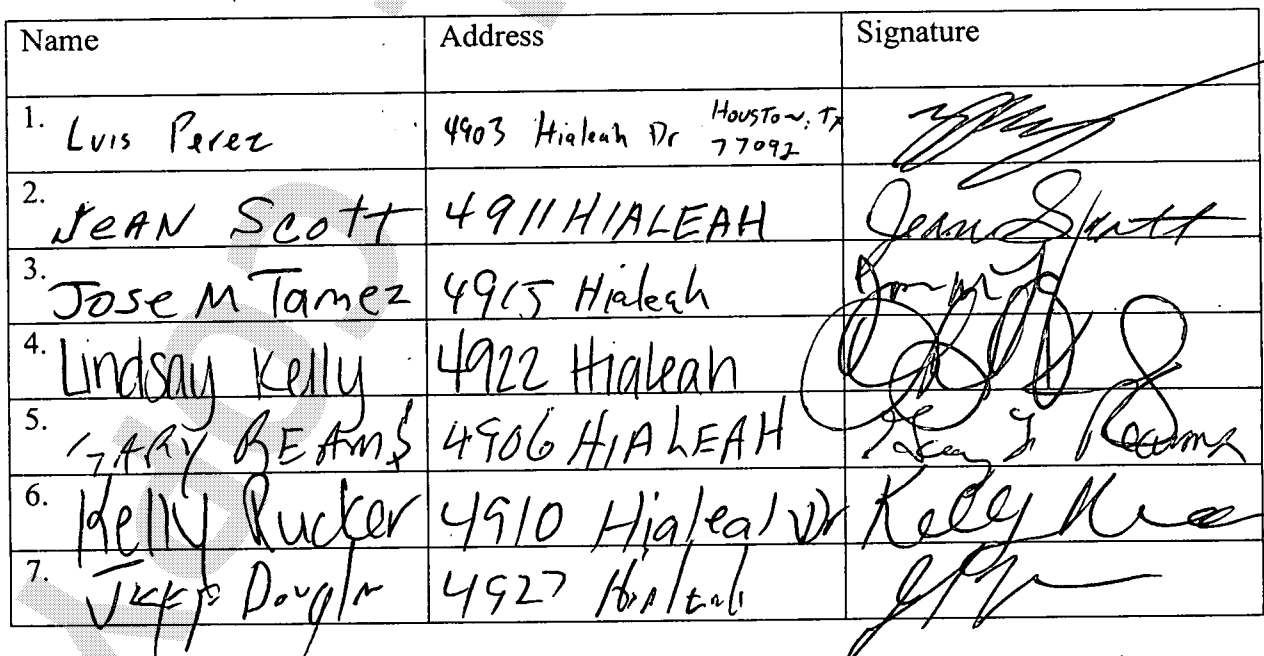 Name Address Signature
1. Luis Perez 4903 Hialeah Dr Houston, TX 77092
2. Jean Scott 4911 HIALEAH Jean Scott
3. Jose M Tamez 4915 Hialeah
4. Lindsay Kelly 4922 Hialeah
5. GARY REAMS 4906 HIALEAH Gary Reams
6. Kelly Rucker 4910 Hialeah Dr Kelly
7. Jeff 4927 Hialeah